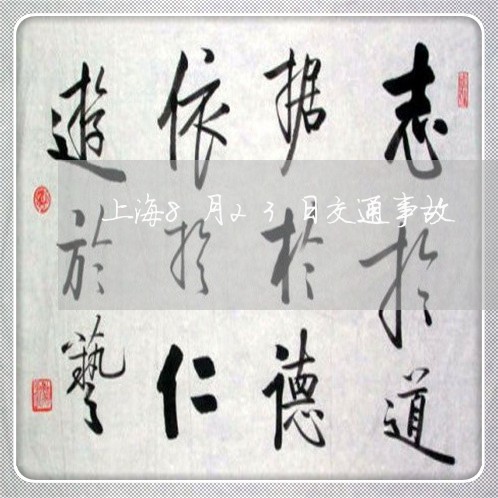 志於道
据於德
依於仁
遊於藝
上海8月23日交通事故